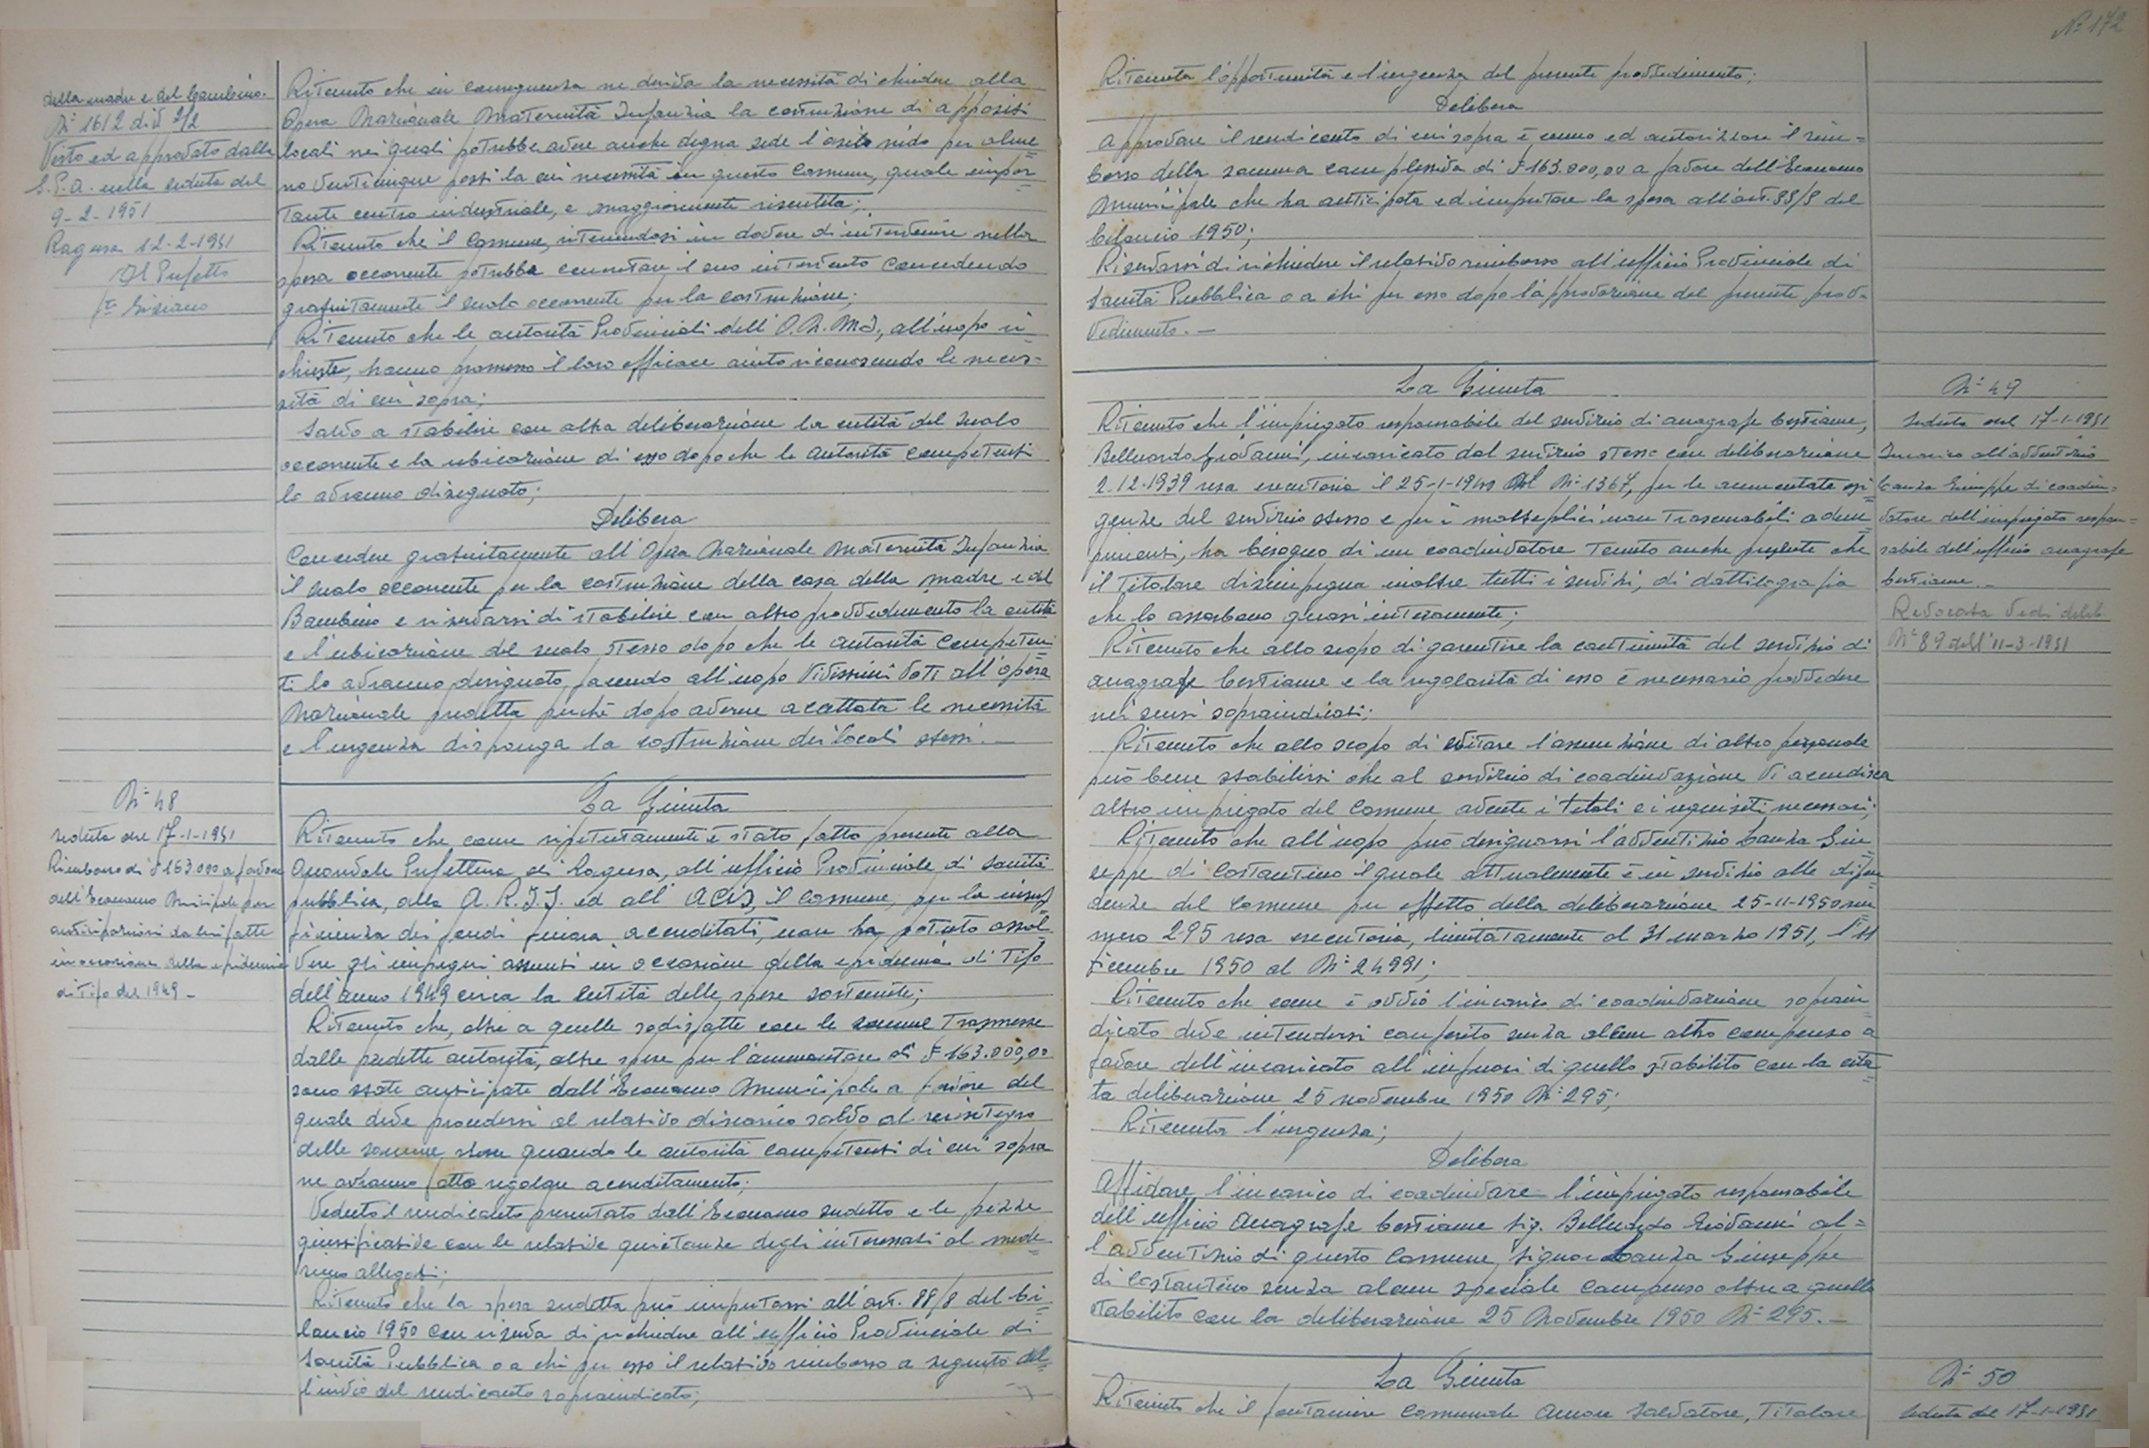 della madre e del bambino.
N° 1612 div 2/2
Visto ed approvato dalla
G.P.A. nella seduta del
9-2-1951
Ragusa 12-2-1951
Il Prefetto
Ritenuto che in conseguenza ne deriva la necessità di chiedere alla
Opera Nazionale Maternità Infanzia la costruzione di appositi
locali nei quali potrebbe avere anche degna sede l'asilo nido per alme=
no venticinque posti la cui necessità in questo Comune, quale impor=
tante centro industriale, è maggiormente risentita;
Ritenuto che il Comune, ritenendosi in dovere di intervenire nella
spesa occorrente potrebbe concretare il suo intervento concedendo
gratuitamente il suolo occorrente per la costruzione;
Ritenuto che le autorità Provinciali dell'O.N.M.I., all'uopo ri=
chieste, hanno promesso il loro efficace aiuto riconoscendo le neces=
sità di cui sopra;
Salvo a stabilire con altra deliberazione la entità del suolo
occorrente e la ubicazione di esso dopo che le autorità competenti
lo avranno disegnato;
Delibera
Concedere gratuitamente all'Opera Nazionale Maternità Infanzia
il suolo occorrente per la costruzione della casa della madre e del
Bambino e riservarsi di stabilire con altro provvedimento la entità
e l'ubicazione del suolo stesso dopo che le autorità competen=
ti lo avranno designato, facendo all'uopo vivissimi voti all'opera
Nazionale predetta perchè dopo averne accettata le necessità
e l'urgenza disponga la costruzione dei locali stessi.—
N° 48
seduta del 17-1-1951
Rimborso di £ 163.000 a favore
dell'Economo Municipale per
anticipazioni da lui fatte
in occasione della epidemia
di Tifo del 1949-
La Giunta
Ritenuto che come ripetutamente è stato fatto presente alla
Onorevole Prefettura di Ragusa, all'ufficio Provinciale di Sanità
pubblica, alla A.R.I.I. ed all'ACIS, il Comune, per la insuf
ficienza dei fondi finora accreditati, non ha potuto assol=
vere gli impegni assunti in occasione della epidemia di Tifo
dell'anno 1949 circa la entità delle spese sostenute;
Ritenuto che, oltre a quelle sodisfatte con le somme trasmesse
dalle predette autorità, altre spese per l'ammontare di £ 163.000,00
sono state anticipate dall'Economo Municipale a favore del
quale deve procedersi al relativo discarico salvo al reintegro
delle somme stesse quando le autorità competenti di cui sopra
ne avranno fatto regolare accreditamento;
Veduto il rendiconto presentato dall'Economo sudetto e le pezze
giustificative con le relative quietanze degli interessati al mede=
simo allegati;
Ritenuto che la spesa sudetta può imputarsi all'art. 88/8 del bi=
lancio 1950 con riserva di richiedere all'ufficio Provinciale di
Sanità Pubblica o a chi per esso il relativo rimborso a seguito del=
l'invio del rendiconto sopraindicato;
N° 172
Ritenuta l'opportunità e l'urgenza del presente provvedimento;
Delibera
Approvare il rendiconto di cui sopra è cenno ed autorizzare il rim=
borso della somma complessiva di £ 163.000,00 a favore dell'Economo
Municipale che ha anticipata ed imputare la spesa all'art. 88/8 del
bilancio 1950;
Riservarsi di richiedere il relativo rimborso all'ufficio Provinciale di
Sanità Pubblica o a chi per esso dopo l'approvazione del presente prov=
vedimento.—
La Giunta
Ritenuto che l'impiegato responsabile del servizio di anagrafe bestiame,
Belluardo Giovanni, incaricato dal servizio stesso con deliberazione
2.12.1939 resa esecutoria il 25-1-1940 al N° 1367, per le aumentate esi=
genze del servizio stesso e per i molteplici non trascurabili adem=
pimenti, ha bisogno di un coadiuvatore tenuto anche presente che
il titolare disimpegna inoltre tutti i servizi, di dattilografia
che lo assorbono quasi interamente;
Ritenuto che allo scopo di garentire la continuità del servizio di
anagrafe bestiame e la regolarità di esso è necessario provvedere
nei sensi sopraindicati;
Ritenuto che allo scopo di evitare l'assunzione di altro personale
può bene stabilirsi che al servizio di coadiuvazione vi accudisca
altro impiegato del Comune, avente i titoli e i requisiti necessari;
Ritenuto che all'uopo può designarsi l'avventizio Canza Giu=
seppe di Costantino il quale attualmente è in servizio alle dipen=
denze del Comune per effetto della deliberazione 25-11-1950 nu=
mero 295 resa esecutoria, limitatamente al 31 marzo 1951, l'11
dicembre 1950 al N° 24991;
Ritenuto che come è ovvio l'incarico di coadiuvazione soprain=
dicato deve intendersi conferito senza alcun altro compenso a
favore dell'incaricato all'infuori di quello stabilito con la cita=
ta deliberazione 25 novembre 1950 N° 295;
Ritenuta l'urgenza;
Delibera
Affidare l'incarico di coadiuvare l'impiegato responsabile
dell'ufficio Anagrafe bestiame Sig. Belluardo Giovanni al=
l'avventizio di questo Comune, Signor Canza Giuseppe
di Costantino senza alcun speciale compenso oltre a quello
stabilito con la deliberazione 25 Novembre 1950 N° 295.—
N° 49
Seduta del 17-1-1951
Incarico all'avventizio
Canza Giuseppe di coadiu=
vatore dell'impiegato respon=
sabile dell'ufficio anagrafe
bestiame.—
Revocata Vedi delib.
N° 89 dell'11-3-1951
La Giunta
Ritenuto che il fontaniere Comunale Amore Salvatore, titolare
N° 50
Seduta del 17-1-1951